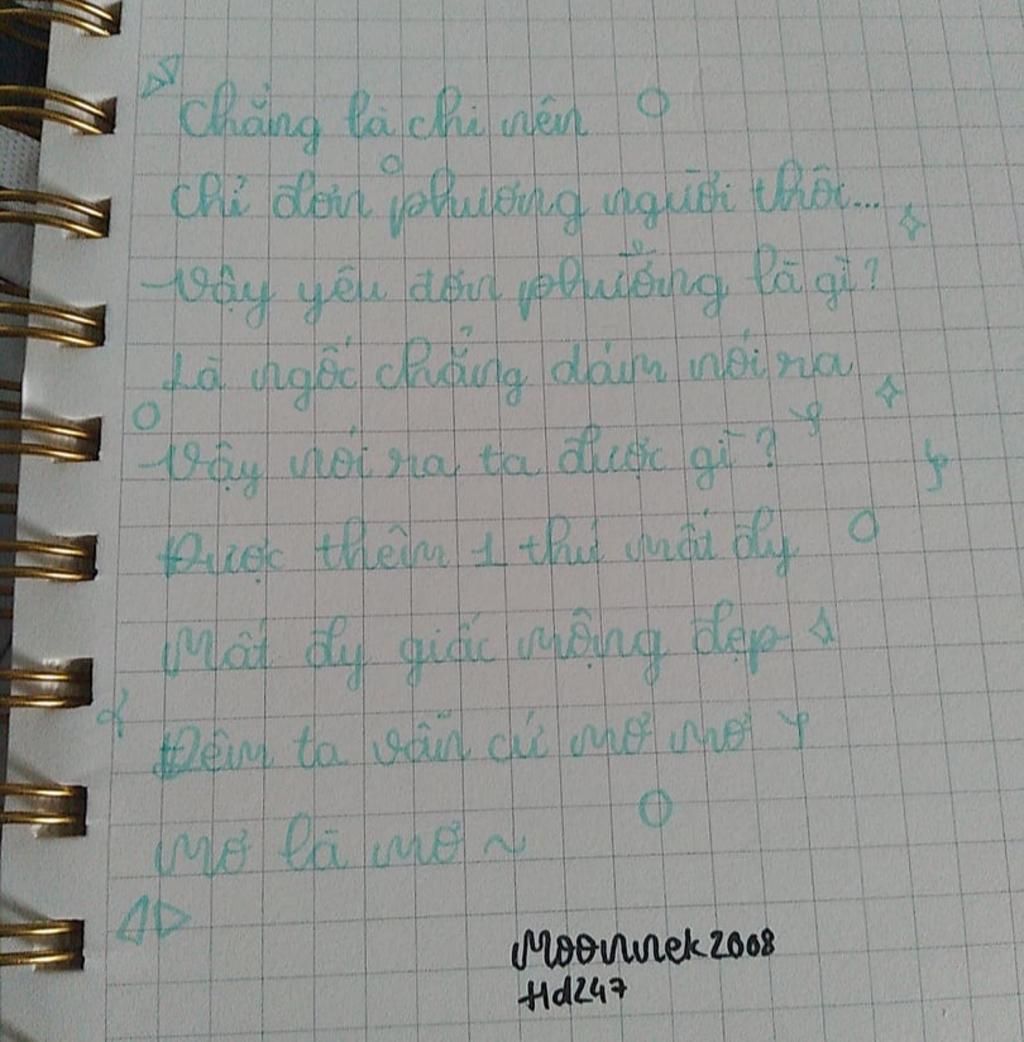 Chẳng là chi nên
Chỉ đơn phương người thôi...
-Vậy yêu đơn phương là gì?
Là ngốc chẳng dám nói ra
-Vậy nói ra ta được gì?
Được thêm 1 thứ mất đy
Mất đy giấc mộng đẹp
Đêm ta vẫn cứ mơ mơ
Mơ là mơ ~
Moonnek2008
Hd247